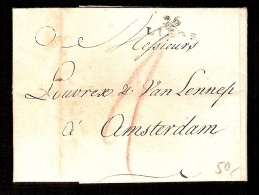 Messieurs
LIEGE
Louvrex & Van Lennep
à
Amsterdam
50,-